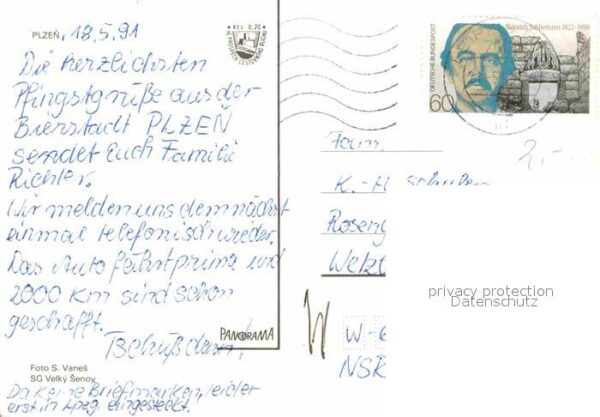 PLZEŇ, 18.5.91
Kčs 0,20
Die herzlichsten
Pfingstgrüße aus der
Bierstadt PLZEŇ
sendet Euch Familie
Richter.
Wir melden uns demnächst
einmal telefonisch wieder.
Das Auto fährt prima und
2000 km sind schon
geschafft.
Tschüß dann!
PANORAMA
Foto S. Vaneš
SG Velký Šenov
Da keine Briefmarken, leider
erst in Lpzg. eingesteckt.
DEUTSCHE BUNDESPOST
60
Heinrich Schliemann 1822-1890
2,-
Fam.
K.-H
Roseng
Wetzl
W-6
privacy protection
Datenschutz